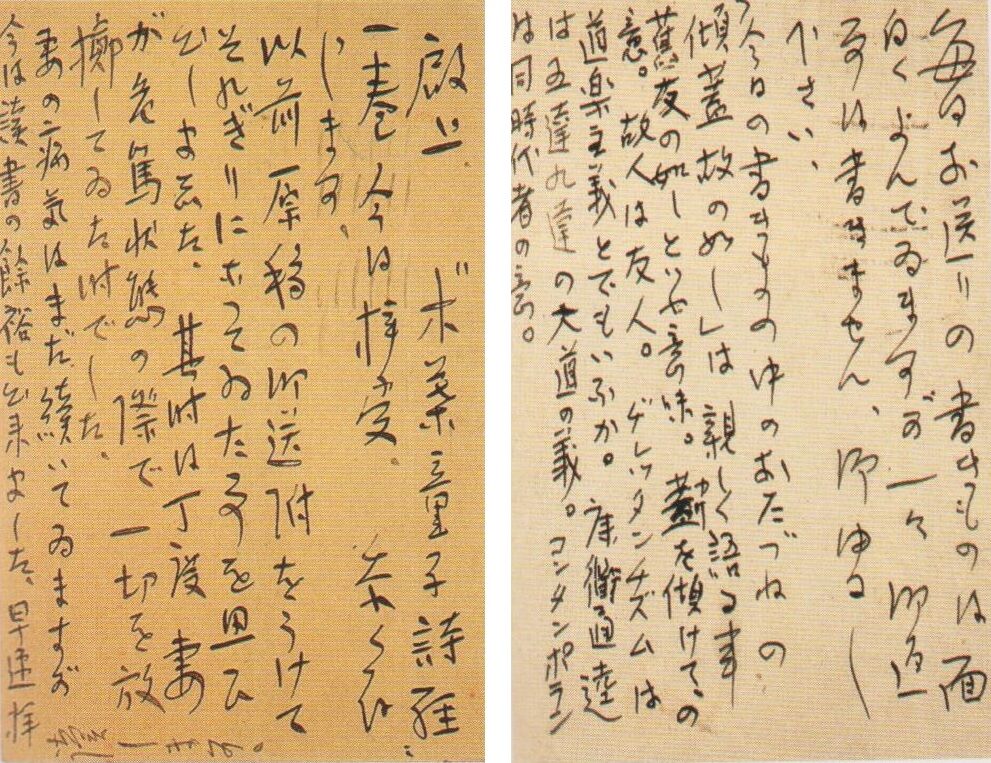 毎日お送りの書きものは面
白くよんでゐますが一々御返
事は書きません、御ゆるし
下さい、
今日の書きものの中のおたづねの
「傾蓋故の如し」は親しく語る事
舊友の如しといふ意味。蓋を傾けての
意。故人は友人。ヂレッタンチズムは
道楽主義とでもいふか。康衢通逵
は五達九達の大道の義。コンタンポラン
は同時代者の意。
啓上 木葉童子詩経
一巻今日拝受、忝く存
じます、
以前原稿の御送附をうけて
それぎりになつてゐた事を思ひ
出しました、其時は丁度妻
が危篤状態の際で一切を放
擲してゐた時でした。
妻の病気はまだ続いてゐますが
今は読書の餘裕も出来ました、早速拝
します。